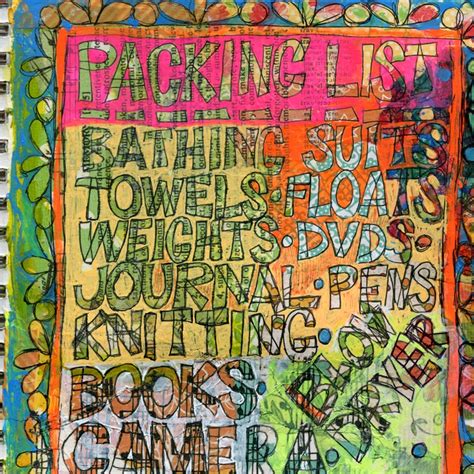 PACKING LIST
BATHING SUITS
TOWELS · FLOATS
WEIGHTS · DVDS ·
JOURNAL · PENS
KNITTING ·
BOOKS ·
BLOW
DRYER
CAMERA ·